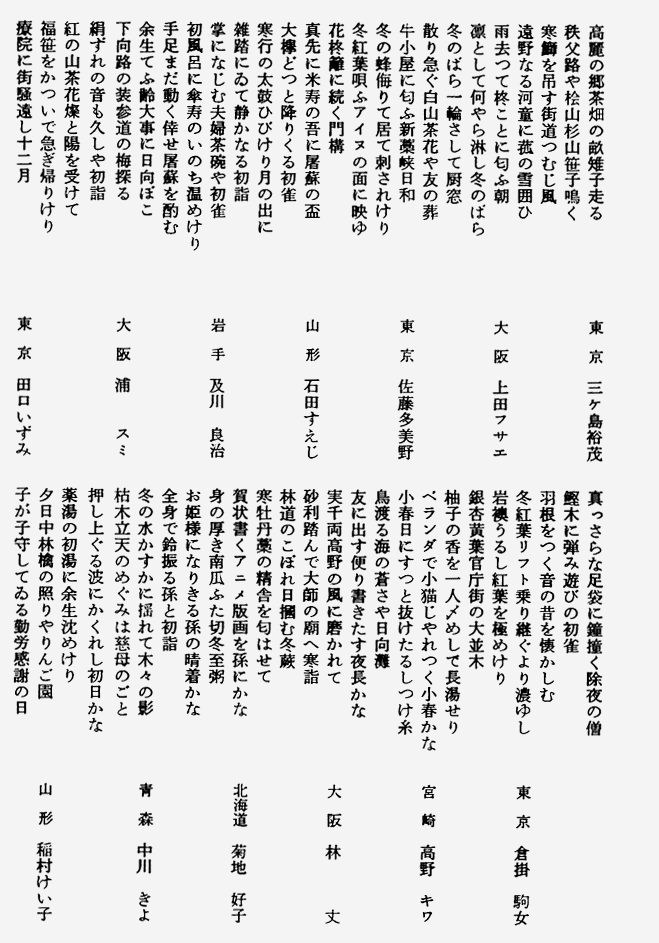 高麗の郷茶畑の畝雉子走る　東京　三ヶ島裕茂
秩父路や桧山杉山笹子鳴く
寒鰤を吊す街道つむじ風
遠野なる河童に菰の雪囲ひ
雨去つて柊ことに匂ふ朝　大阪　上田フサエ
凛として何やら淋し冬のばら
冬のばら一輪さして厨窓
散り急ぐ白山茶花や友の葬
牛小屋に匂ふ新藁峡日和　東京　佐藤多美野
冬の蜂侮りて居て刺されけり
冬紅葉唄ふアイヌの面に映ゆ
花柊籬に続く門構
真先に米寿の吾に屠蘇の盃　山形　石田すえじ
大欅どつと降りくる初雀
寒行の太鼓ひびけり月の出に
雑踏にゐて静かなる初詣
掌になじむ夫婦茶碗や初雀　岩手　及川　良治
初風呂に傘寿のいのち温めけり
手足まだ動く倖せ屠蘇を酌む
余生てふ齢大事に日向ぼこ
下向路の装参道の梅探る　大阪　浦　スミ
絹ずれの音も久しや初詣
紅の山茶花燦と陽を受けて
福笹をかついで急ぎ帰りけり
療院に街騒遠し十二月　東京　田口いずみ
真っさらな足袋に鐘撞く除夜の僧
鰹木に弾み遊びの初雀
羽根をつく音の昔を懐かしむ
冬紅葉リフト乗り継ぐより濃ゆし　東京　倉掛　駒女
岩襖うるし紅葉を極めけり
銀杏黄葉官庁街の大並木
柚子の香を一人〆めして長湯せり
ベランダで小猫じやれつく小春かな　宮崎　高野　キワ
小春日にすつと抜けたるしつけ糸
鳥渡る海の蒼さや日向灘
友に出す便り書きたす夜長かな
実千両高野の風に磨かれて　大阪　林　丈
砂利踏んで大師の廟へ寒詣
林道のこぼれ日摑む冬蕨
寒牡丹藁の精舎を匂はせて
賀状書くアニメ版画を孫にかな　北海道　菊地　好子
身の厚き南瓜ふた切冬至粥
お姫様になりきる孫の晴着かな
全身で鈴振る孫と初詣
冬の水かすかに揺れて木々の影　青森　中川　きよ
枯木立天のめぐみは慈母のごと
押し上ぐる波にかくれし初日かな
薬湯の初湯に余生沈めけり
夕日中林檎の照りやりんご園　山形　稲村けい子
子が子守してゐる勤労感謝の日